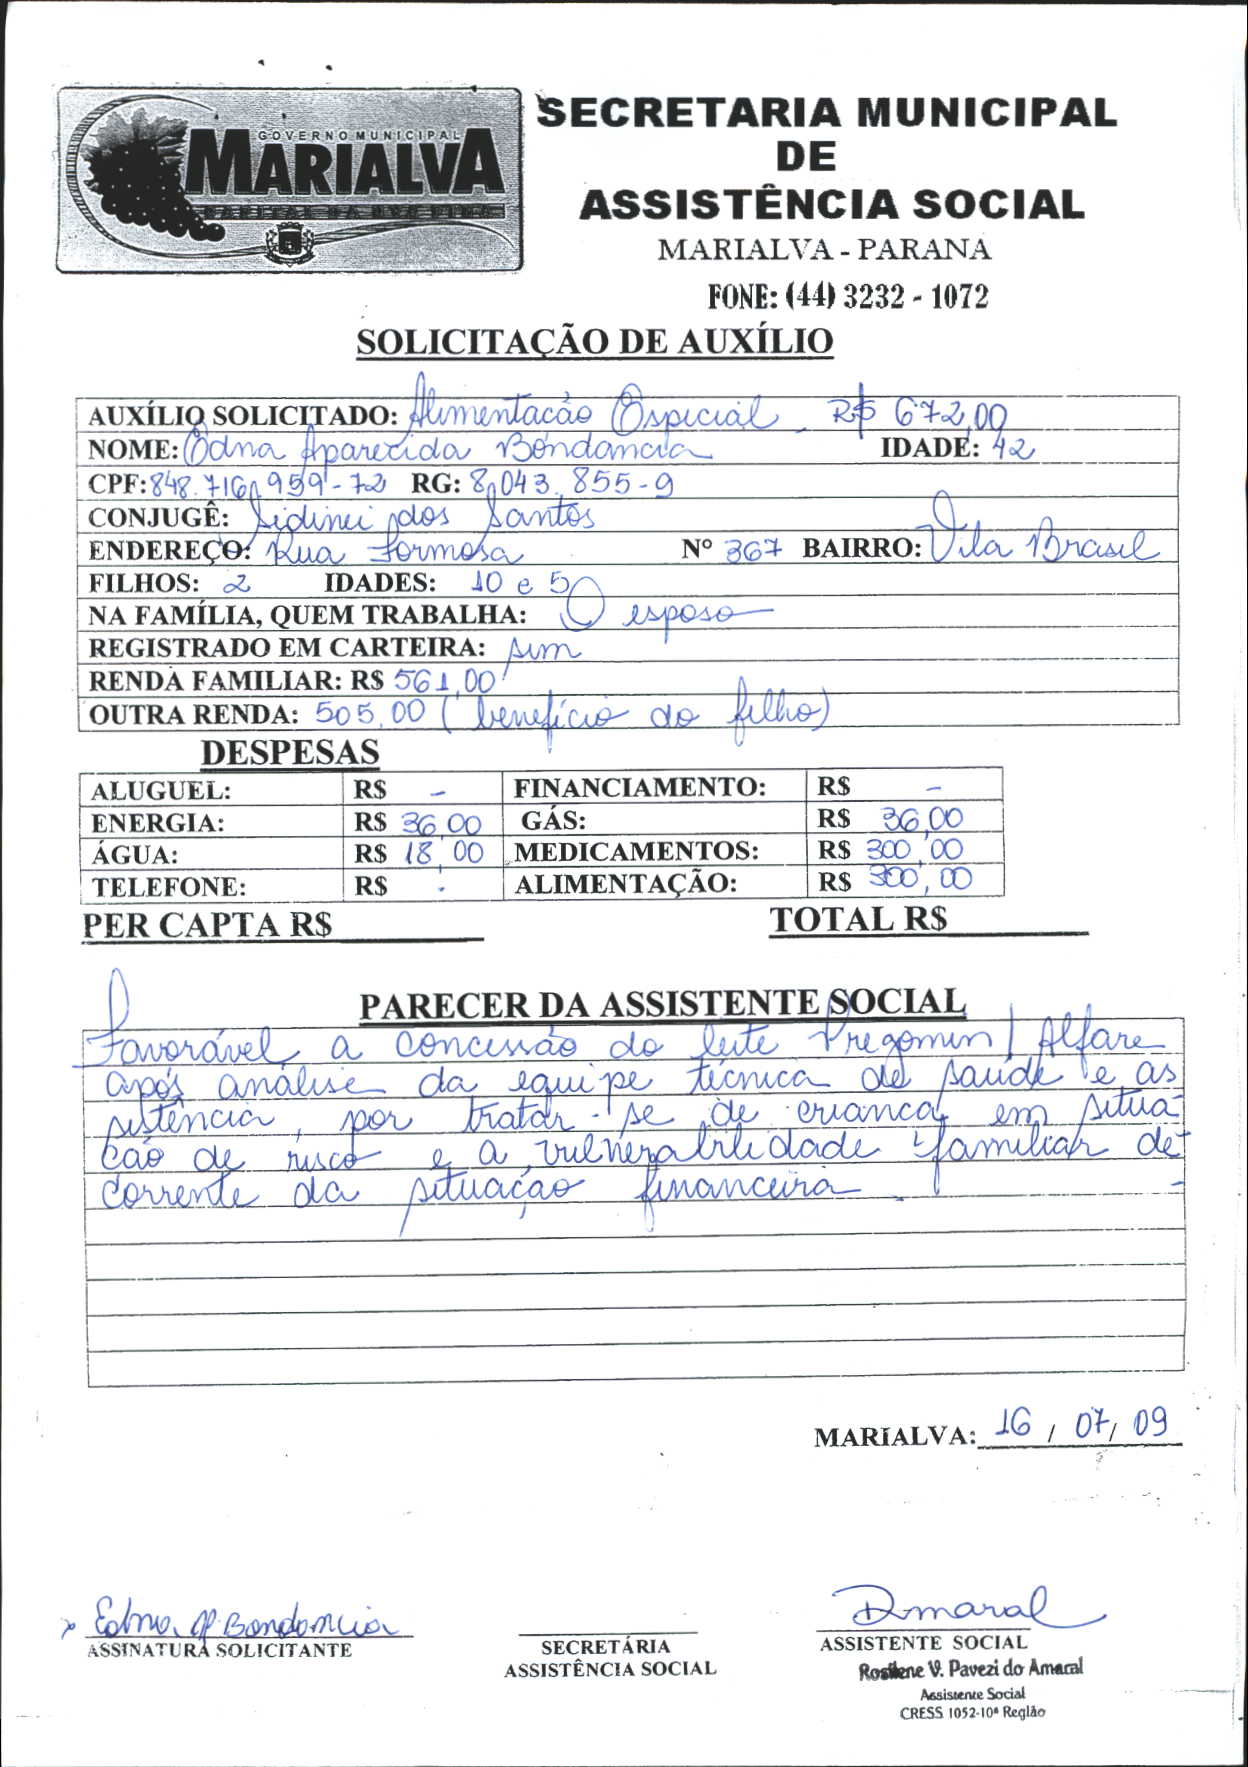 GOVERNO MUNICIPAL
MARIALVA
CAPITAL DA UVA FINA
SECRETARIA MUNICIPAL
DE
ASSISTÊNCIA SOCIAL
MARIALVA - PARANA
FONE: (44) 3232 - 1072
SOLICITAÇÃO DE AUXÍLIO
AUXÍLIO SOLICITADO: Alimentacão Especial - R$ 672,00
NOME: Edna Aparecida Bondancia IDADE: 42
CPF: 848.716.959-72 RG: 8.043.855-9
CONJUGÊ: Sidinei dos Santos
ENDEREÇO: Rua Formosa Nº 367 BAIRRO: Vila Brasil
FILHOS: 2 IDADES: 10 e 5
NA FAMÍLIA, QUEM TRABALHA: O esposo
REGISTRADO EM CARTEIRA: sim
RENDA FAMILIAR: R$ 561,00
OUTRA RENDA: 505,00 (benefício do filho)
DESPESAS
ALUGUEL: R$ - FINANCIAMENTO: R$ -
ENERGIA: R$ 36,00 GÁS: R$ 36,00
ÁGUA: R$ 18,00 MEDICAMENTOS: R$ 300,00
TELEFONE: R$ - ALIMENTAÇÃO: R$ 300,00
PER CAPTA R$ TOTAL R$
PARECER DA ASSISTENTE SOCIAL
Favorável a concessão do leite Pregomin / Alfare
após análise da equipe técnica de saúde e as
sistência, por tratar-se de criança em situa-
ção de risco e a vulnerabilidade familiar de-
corrente da situação financeira.
MARIALVA: 16 / 07 / 09
x Edna Ap. Bondancia
ASSINATURA SOLICITANTE
SECRETÁRIA
ASSISTÊNCIA SOCIAL
RAmaral
ASSISTENTE SOCIAL
Rosilene V. Pavezi do Amaral
Assistente Social
CRESS 1052-10ª Região